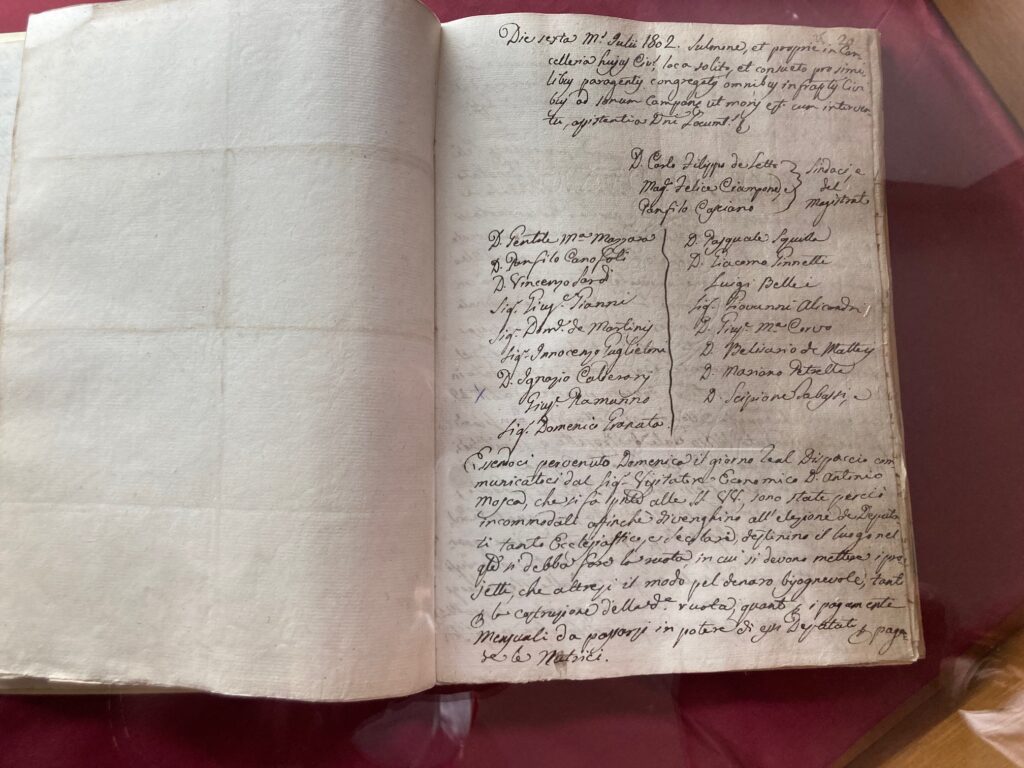 Die sexta M.s Julii 1802. Sulmone, et proprie in Can
celleria hujus Civ.s loco solito, et consueto pro simi
libus peragentis congregatis omnibus infraptis Civi
bus ad sonum Campane ut moris est cum interven
tu, assistentia Dni Locumt.s
D. Carlo Filippo de Letto
Mag.o Felice Ciampone, e
Panfilo Casciano
Sindaci, e
del
Magistrat
D. Gentile M.a Mazzara
D. Panfilo Canofoli
D. Vincenzo Sardi
Sig. Gius.e Gianni
Sig. Dom.o de Martinis
Sig. Innocenzo Puglieloni
D. Ignazio Calderary
Gius.e Ramunno
Sig. Domenico Granata.
D. Pasquale Squilla
D. Giacomo Pinnelli
Luigi Bellei
Sig. Giovanni Alicandri
D. Gius.e M.a Corvo
D. Belisario de Matteis
D. Mariano Petrella
D. Scipione Tabassi, e
Essendoci pervenuto Domenica il giorno Real Dispaccio com
municatoci dal Sig. Visitatore Economico D. Antonio
Mosca, che si fà alle SS. VV. sono state perciò
incommodate affinchè divenghino all'elezione de Deputa
ti tanto Ecclesiastico, e secolare, destinino il luogo nel
q.le si debba fare la ruota in cui si devono mettere i pro
jetti, che altresi il modo pel denaro bisognevole, tant
p la costruzione della d.a ruota, quant p i pagamenti
mensuali da passarsi in potere di essi Deputati p paga
re le Nutrici.